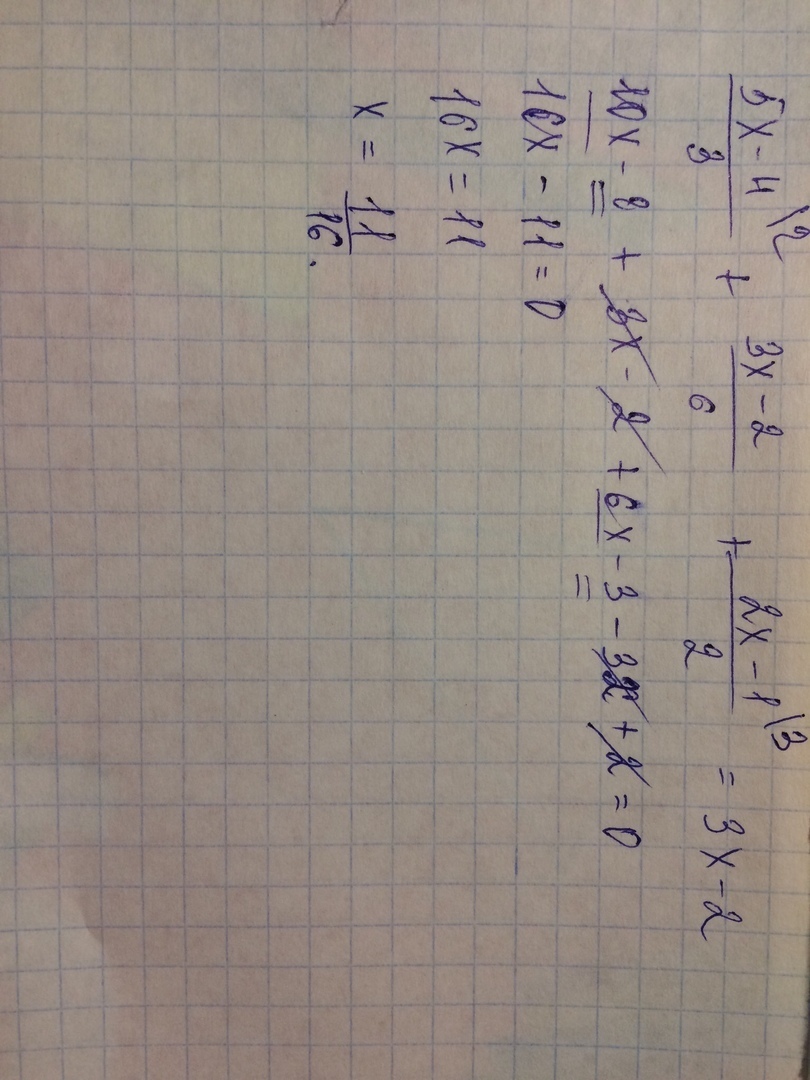 5x-4\2/3 + 3x-2/6 + 2x-1\3/2 = 3x-2
10x - 8 + 3x - 2 + 6x - 3 - 3x + 2 = 0
16x - 11 = 0
16x = 11
x = 11/16.